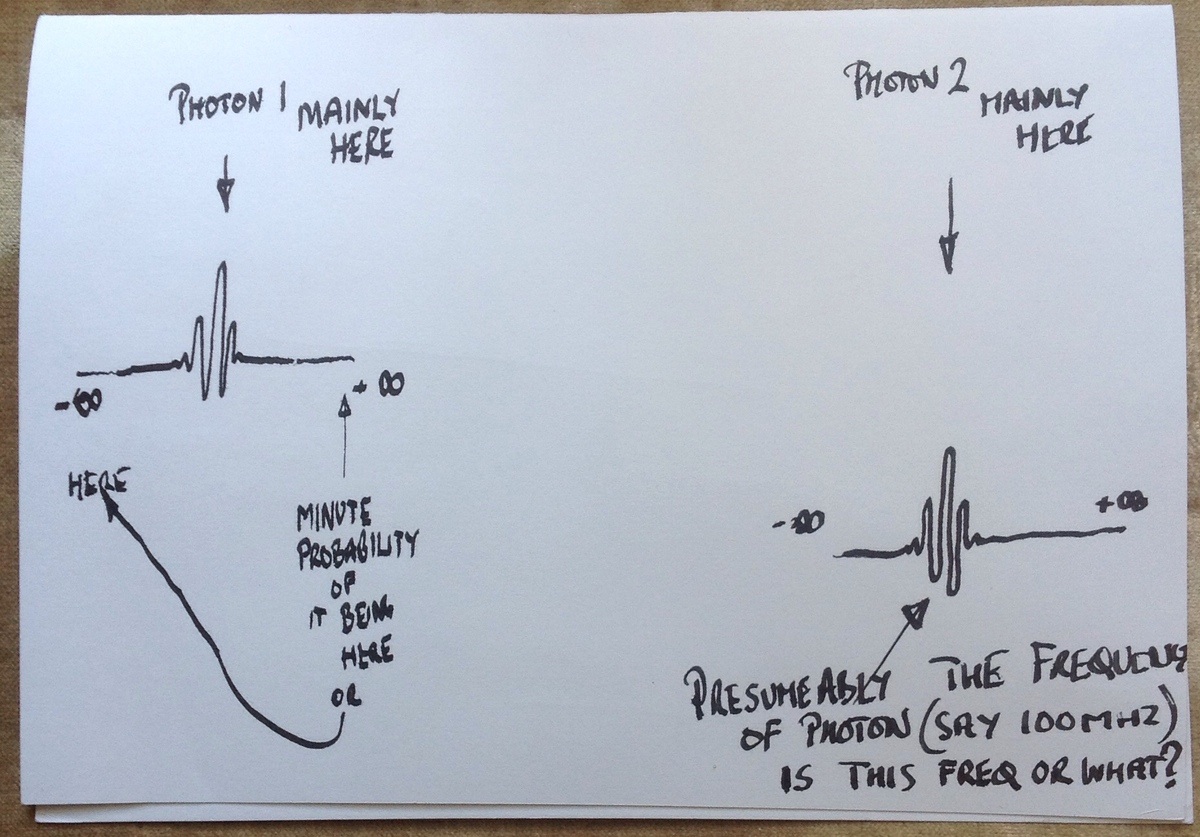 PHOTON 1 MAINLY
HERE
-∞
+∞
HERE
MINUTE
PROBABILITY
OF
IT BEING
HERE
OR
PHOTON 2 MAINLY
HERE
-∞
+∞
PRESUMEABLY THE FREQUENCY
OF PHOTON (SAY 100MHZ)
IS THIS FREQ OR WHAT?